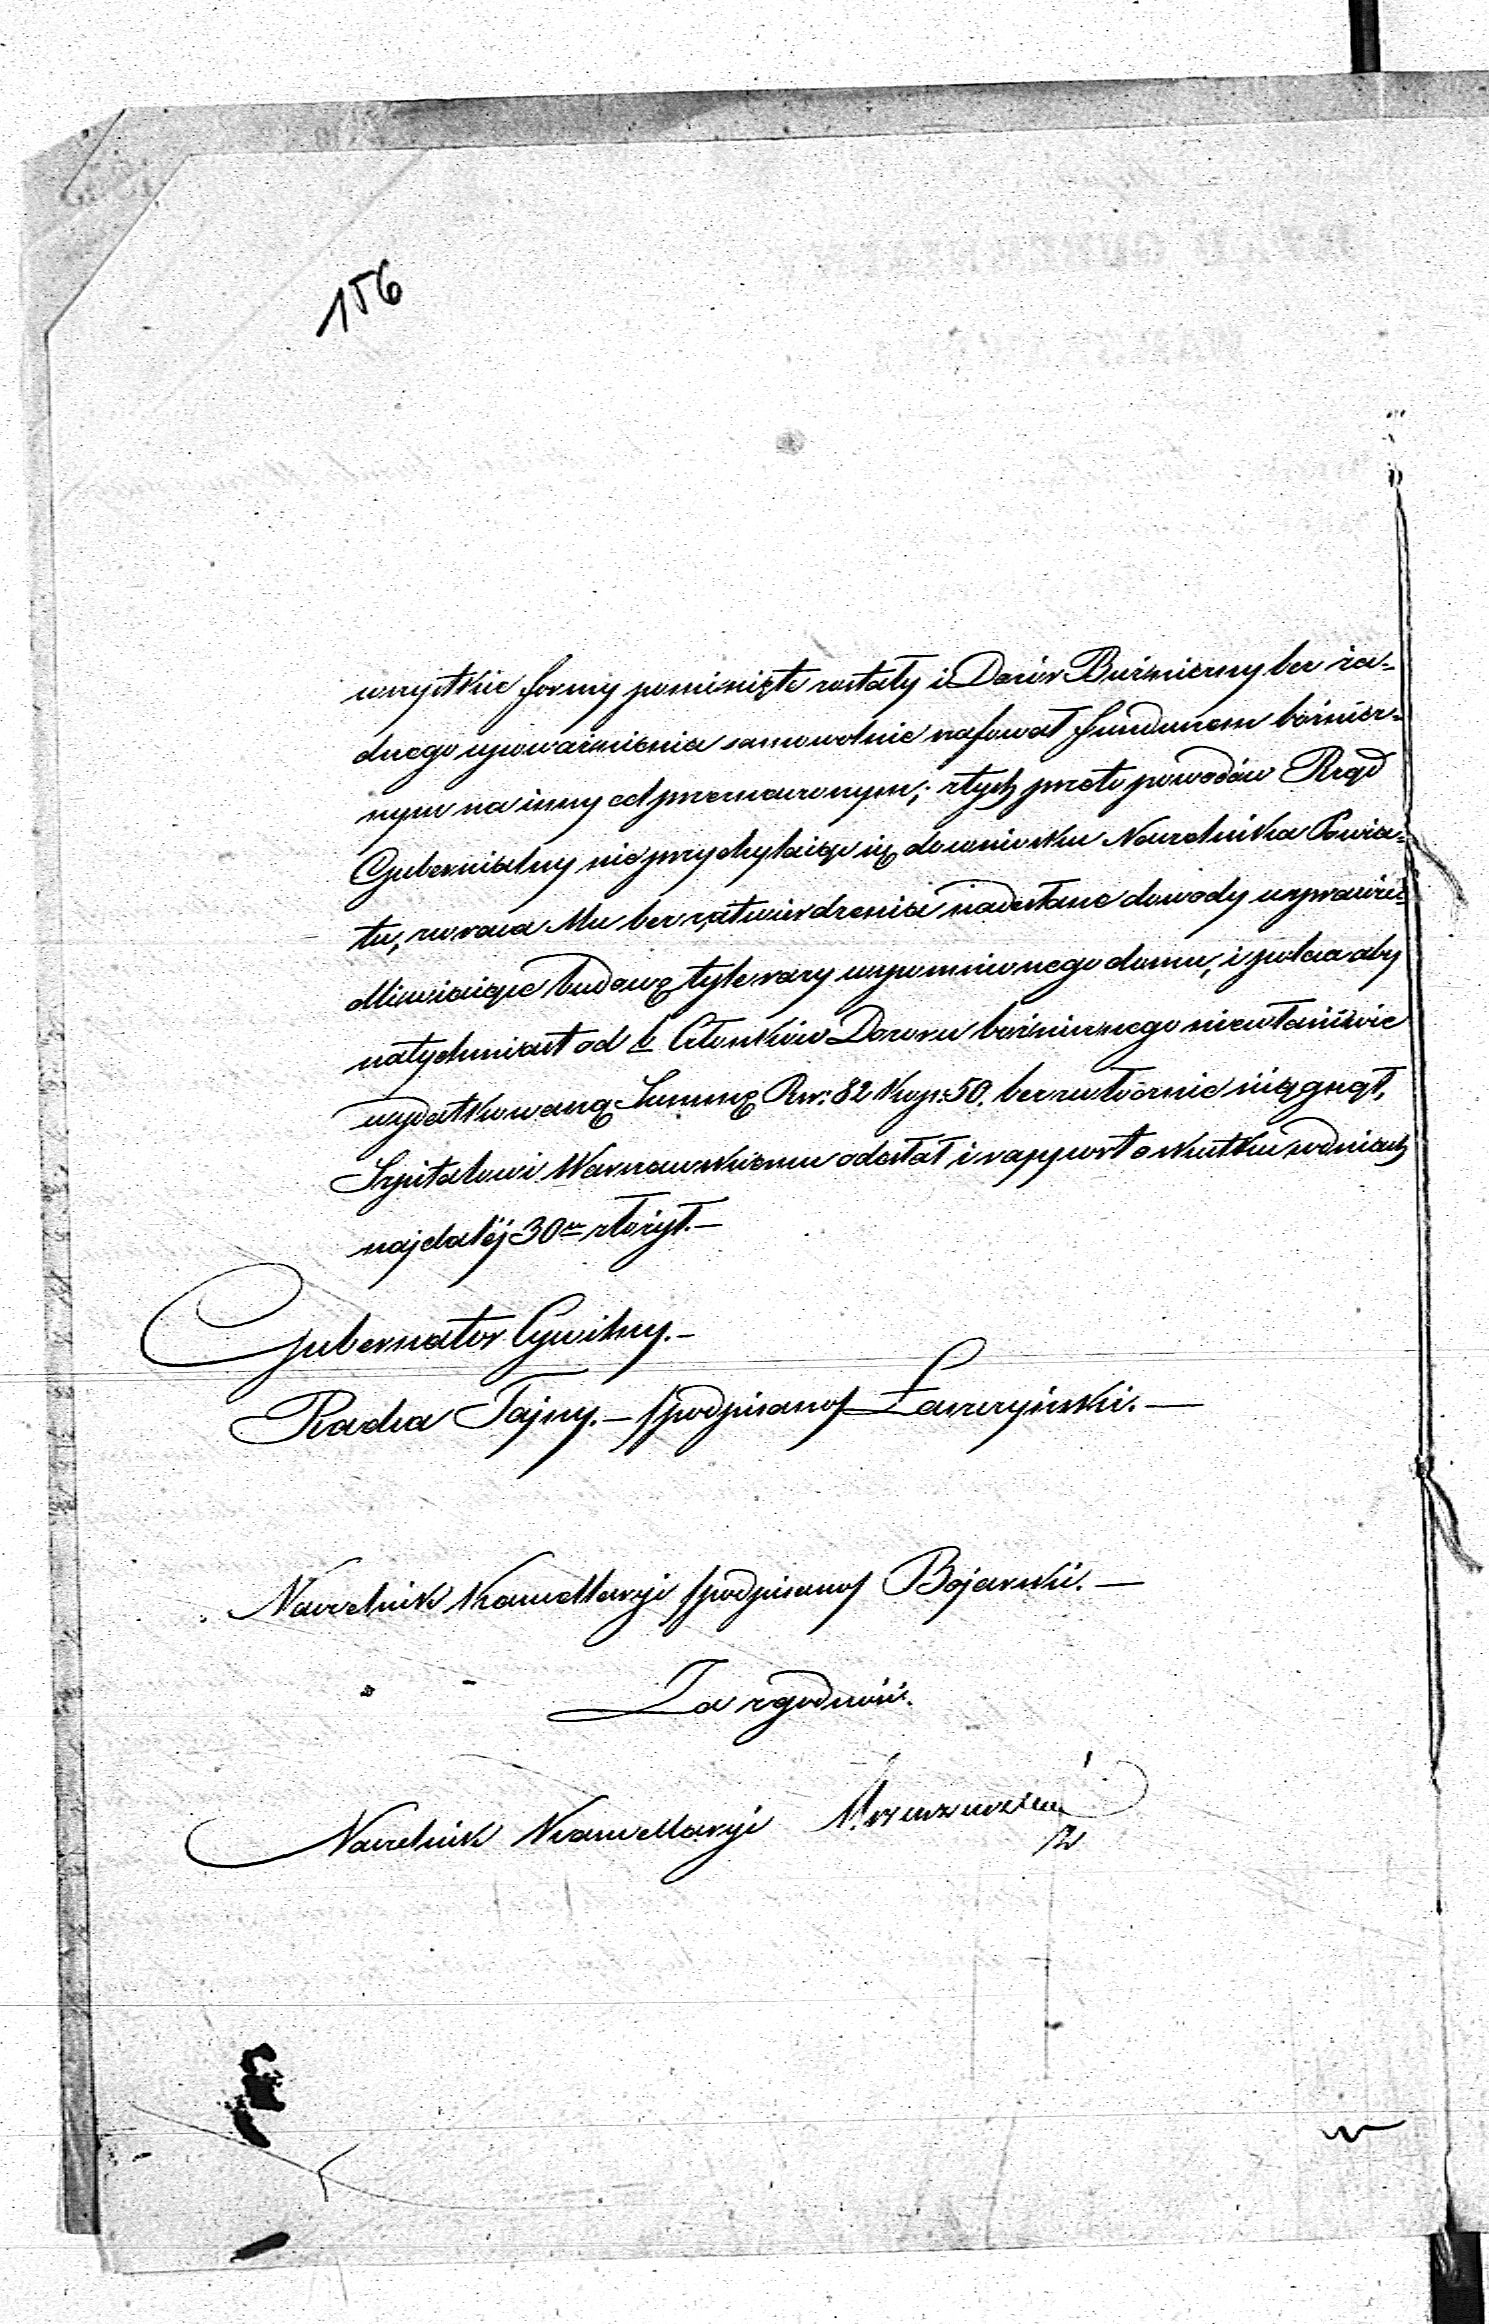 156
wszystkie formy pominięte zostały i Dozór Bużniczny bez ża-
dnego upoważnienia samowolnie szafował funduszem bożnicz-
nym na inny cel przeznaczonym; z tych przeto powodów Rząd
Gubernialny nie przychylając się do wniosku Naczelnika Powia-
tu, zwraca Mu bez zatwierdzenia nadesłane dowody usprawie-
dliwiające budowę tyle razy wspomnionego domu, i poleca aby
natychmiast od b. Członków Dozoru bożnicznego niewłaściwie
wydatkowaną Summę Rsr: 82 Kop: 50. bezzwłocznie ściągnął,
Szpitalowi Warszawskiemu odesłał i rapport o skutku w dniach
najdalej 30tu złożył.—
Gubernator Cywilny.—
Radca Tajny.— /podpisano/ Łaszczyński.—
Naczelnik Kancellaryi /podpisano/ Bojarski.—
Za zgodność.
Naczelnik Kancellaryi